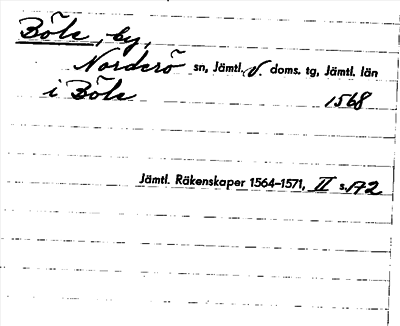 Böle, by,
Norderö sn, Jämtl. v. doms. tg, Jämtl. län
i Böle 1568
Jämtl. Räkenskaper 1564-1571, II s. 172